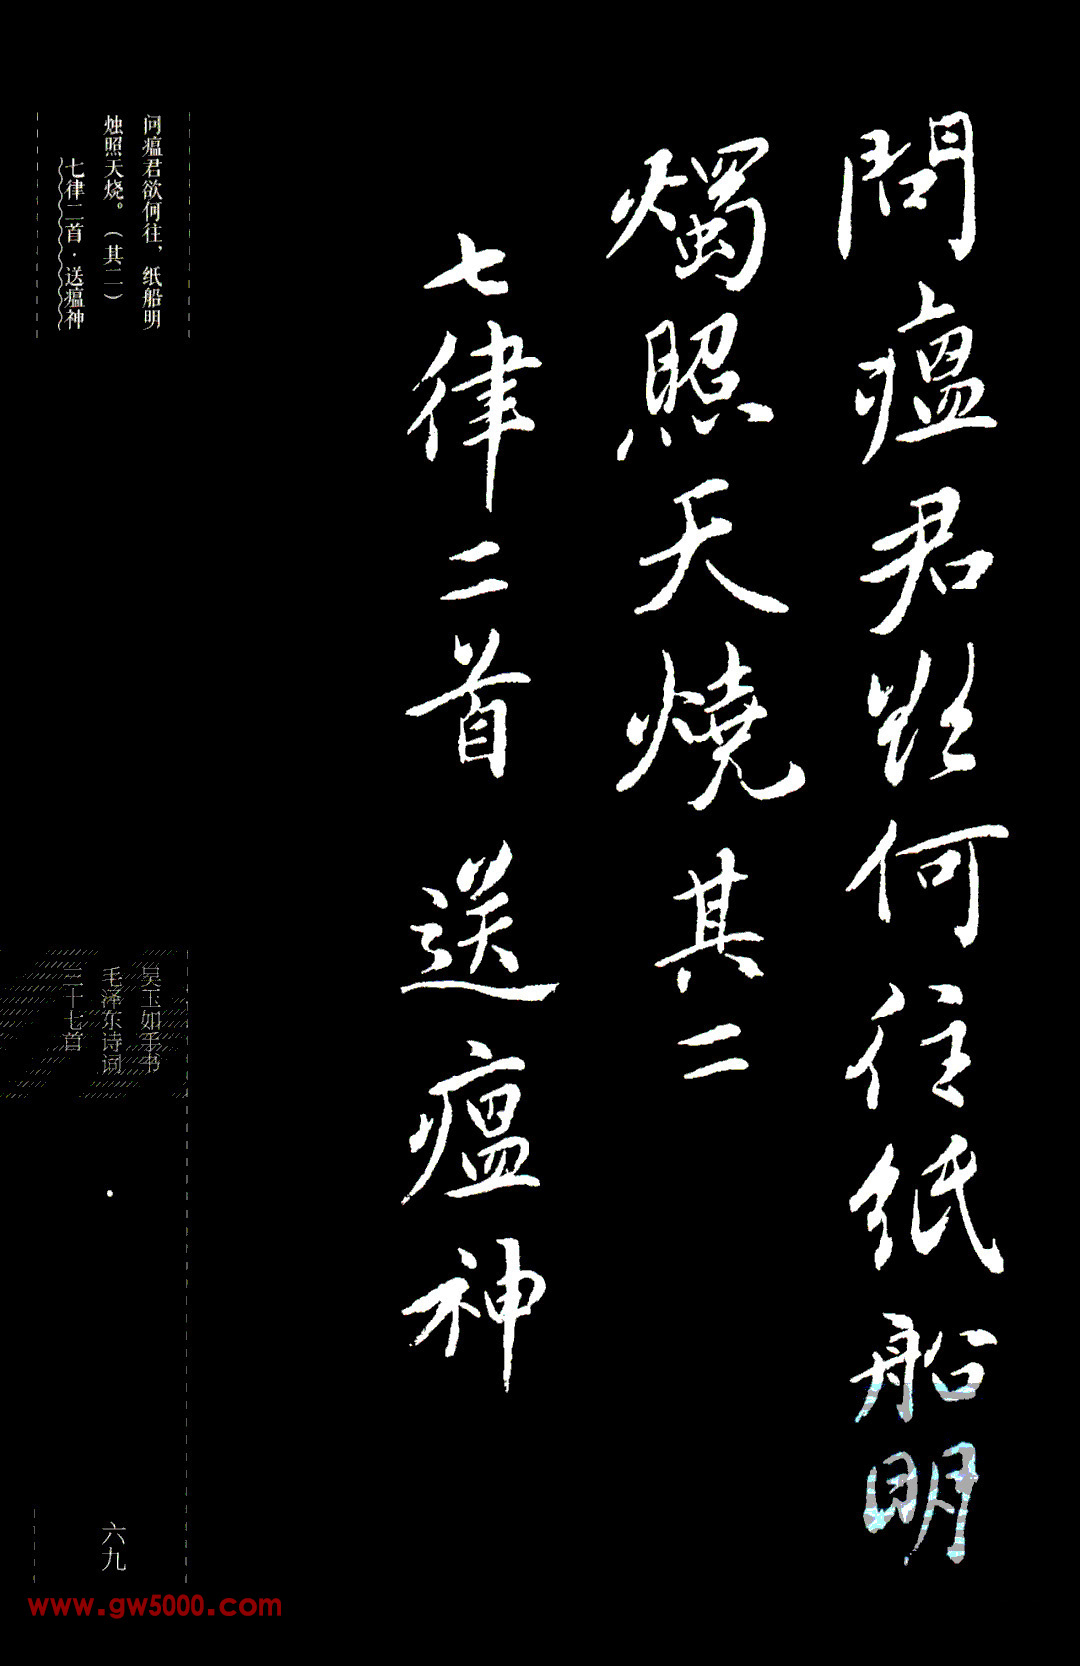 問瘟君欲何往紙船明
燭照天燒其二
七律二首送瘟神
问瘟君欲何往，纸船明
烛照天烧。（其二）
七律二首·送瘟神
吴玉如手书
毛泽东诗词
三十七首
·
六九
www.gw5000.com